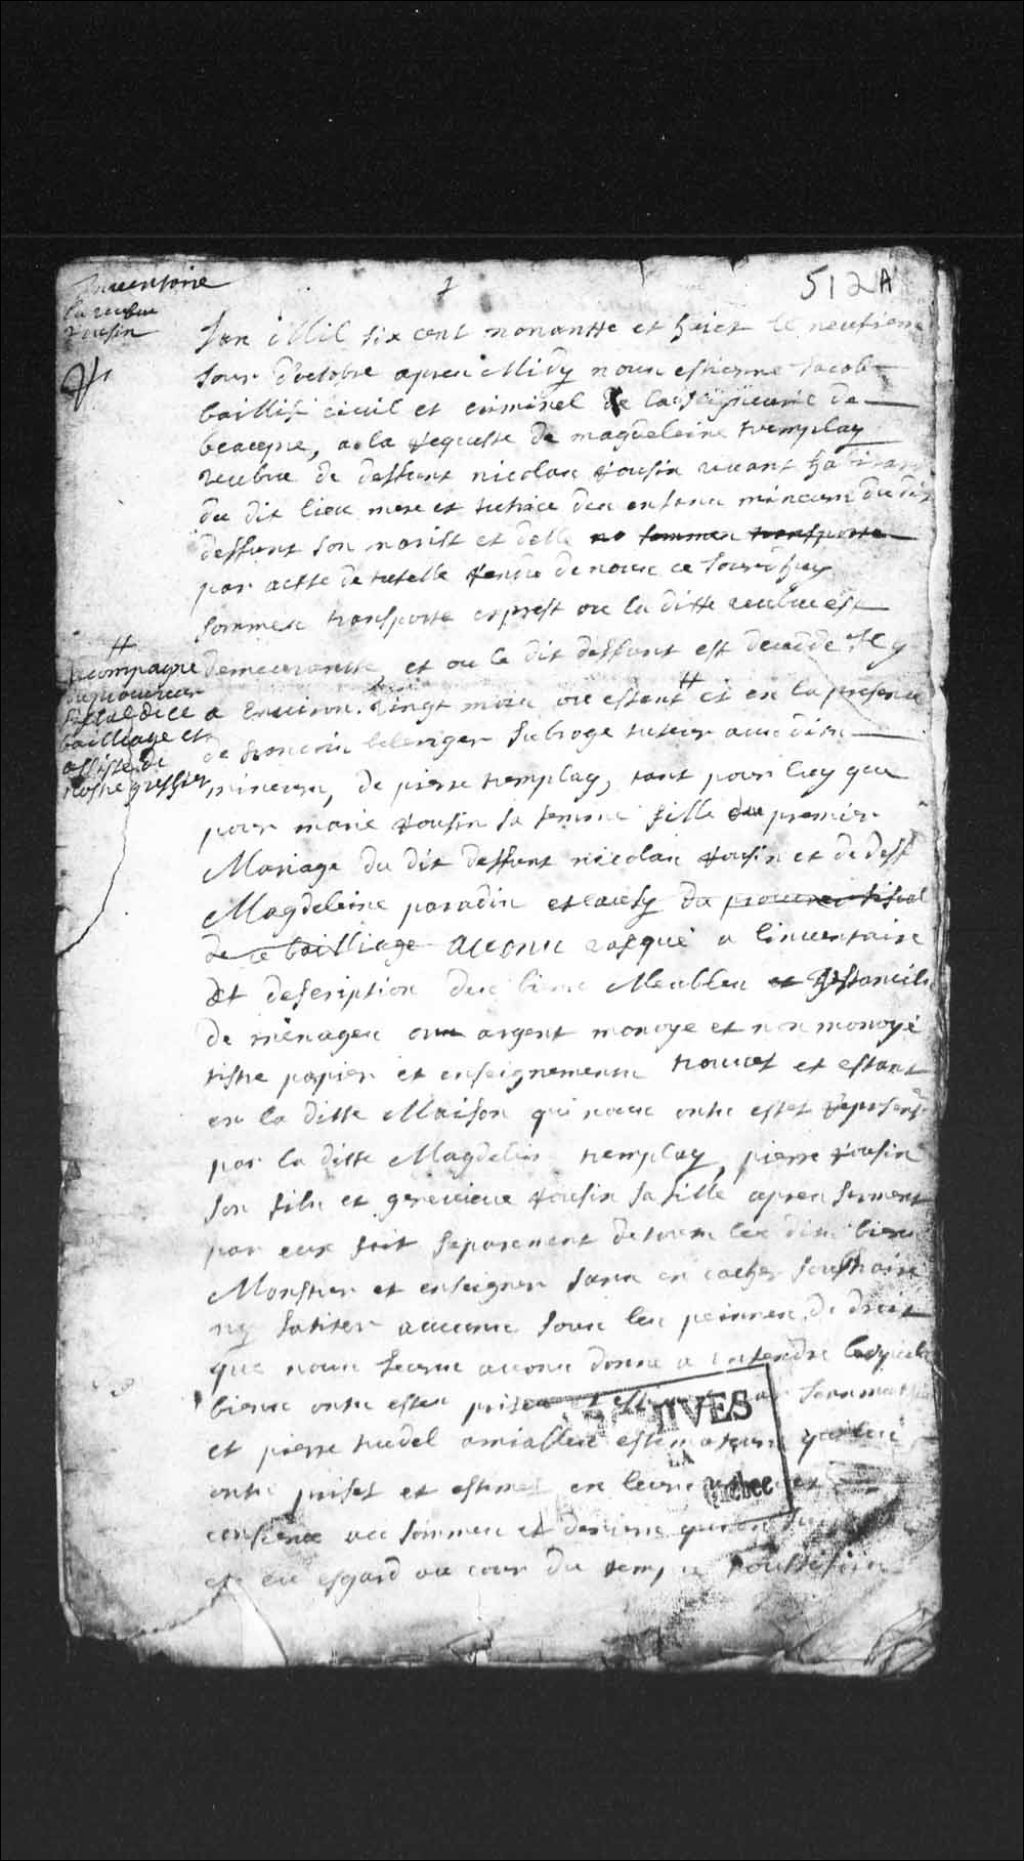 Inventoire
la veufve
Rousin
1
512A
Lan Mil six cent nonantte et huict le neufieme
Jour doctobre apres Midy nous estienne Jacob
baillif civil et criminel de la seigneurie de
beaupre, a la requeste de magdeleine tremplay
veufve de deffunt nicolas rousin vivant habitant
du dit lieu mere et tutrice des enfans mineurs du dit
deffunt son marist et delle no sommes transporte
par actte de tutelle rendu de nous ce Jourdhuy
sommes transporte exprest ou la ditte veufve est
demeurantte et ou le dit deffunt est decede Il y
a environ vingt mois ou estant # et en la presence
de francois belenger subroge tuteur aux dits
mineurs, de pierre tremplay, tant pour luy que
pour marie rousin sa femme fille du premier
Mariage du dit deffunt nicolas rousin et de deff
Magdeleine paradin et aussy du procureur fiscal
de ce bailliage avons vasqué a linventaire
et description des biens Meubles et Ustancils
de menages or argent monoye et non monoyé
tistre papier et enseignements trouvet et estant
en la ditte Maison qui nous onts estet represente
par la ditte Magdelin tremplay, pierre rousin
son fils et genevieve rousin sa fille apres serment
par eux fait separement de tous les dits biens
Monstrer et enseigner sans en cacher soustraire
ny latiter aucuns sous les peinnes de droit
que nous leurs avons donne a entendre lesquels
biens onts estes prises
et pierre trudel amiables estimateurs qui les
onts priset et estimet en leurs
consience aux sommes et deniers
et eu esgard au cour du temps
#
accompagne
du procureur
fiscal de ce
bailliage et
assiste de
nostre greffier
ARCHIVES
LA
Québec